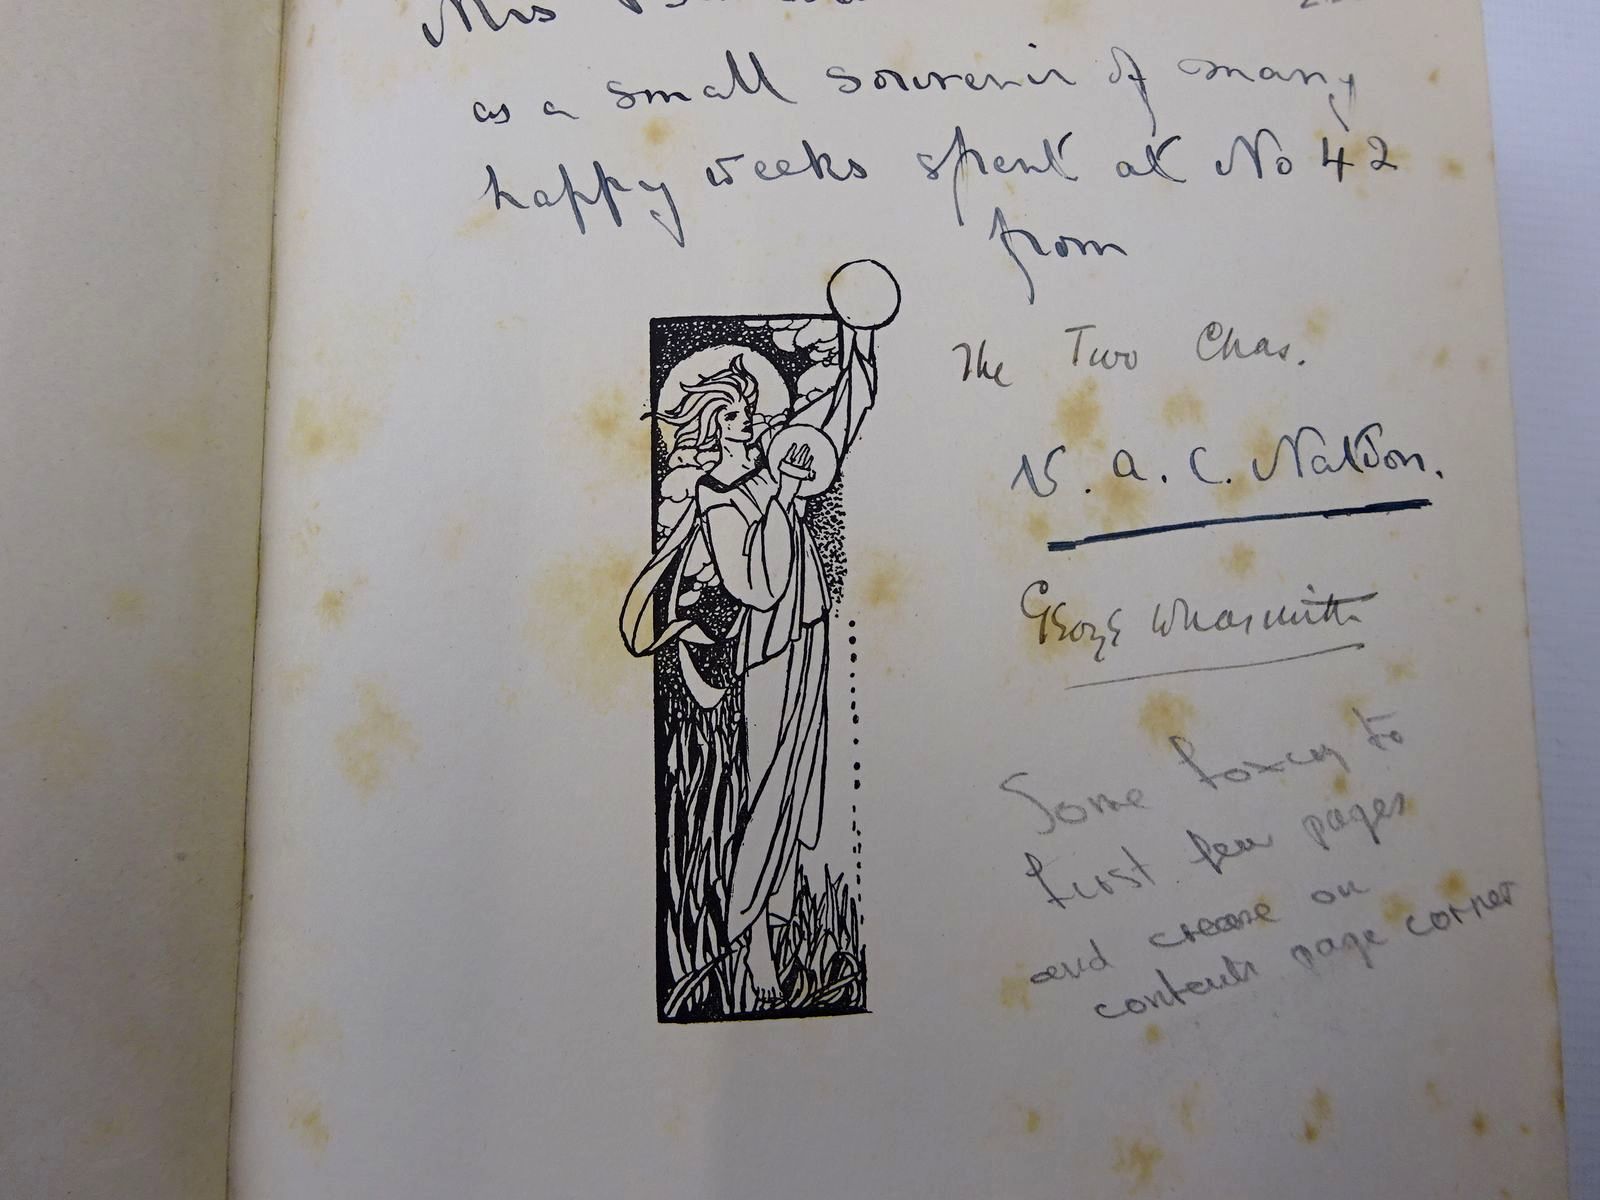 Mrs
as a small souvenir of many
happy weeks spent at No 42
from
The Two Chas.
A. C.
George
Some foxing to
first few pages
and crease on
contents page corner